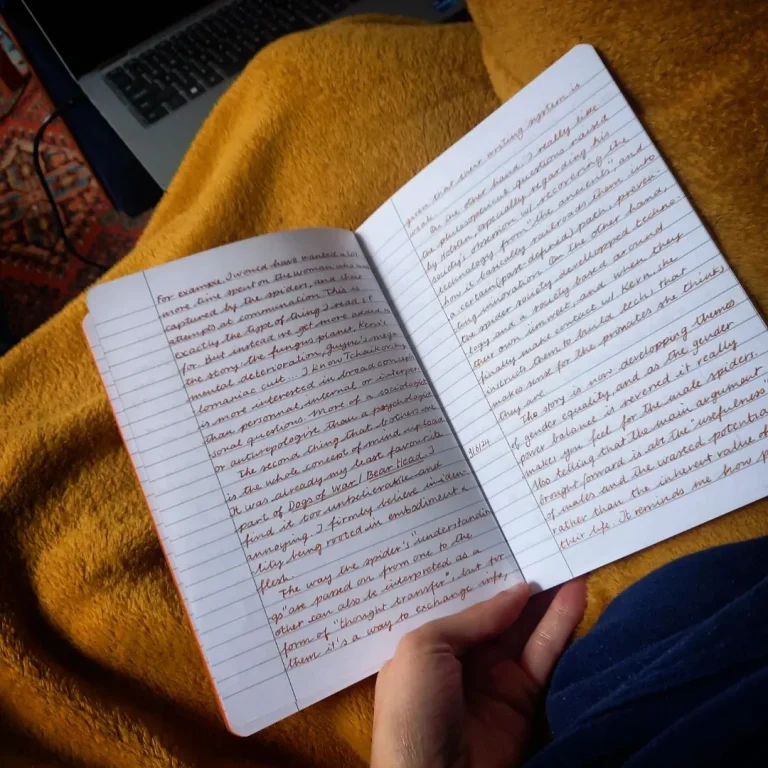 For example I would have wanted a lot
more time spent on the woman who was
captured by the spiders, and their
attempts at communication. This is
exactly the type of thing I read it
for. But instead we get more about
the story, the fungus planet, Kern's
mental deterioration, Guyen's mega-
lomaniac cult... I know Tchaikovsky
is more interested in broad concepts
than personal, internal or interper-
sonal questions. More of a sociologist
or anthropologist than a psychologist.
The second thing that bothers me
is the whole concept of mind upload.
It was already my least favourite
part of Dogs of War / Bear Head. I
find it too unbelievable and
annoying. I firmly believe in
lity being rooted in embodiment &
flesh.
The way the spider's "understandin
gs" are passed on from one to the
other can also be interpreted as a
form of "thought transfer", but for
them it's a way to exchange info,
given that their writing system is
weak.
On the other hand, I really like
the philosophical questions raised
by Holsten, especially regarding his
society's obsession w/ recovering the
technology from "the ancients", and
how is basically railroads them into
a certain (past-defined) path, preven-
ting innovation. On the other hand,
the spider society developped techno-
logy and a society based around
their own Umwelt, and when they
finally make contact w/ Kern she
instructs them to build tech that
makes sense for the primates she thinks
they are.
9/6/24 The story is now developping themes
of gender equality, and as the gender
power balance is reversed it really
makes you feel for the male spiders.
Also telling that the main argument
brought forward is abt the "usefulness"
of males and the wasted potential
rather than the inherent value of
their life. It reminds me how